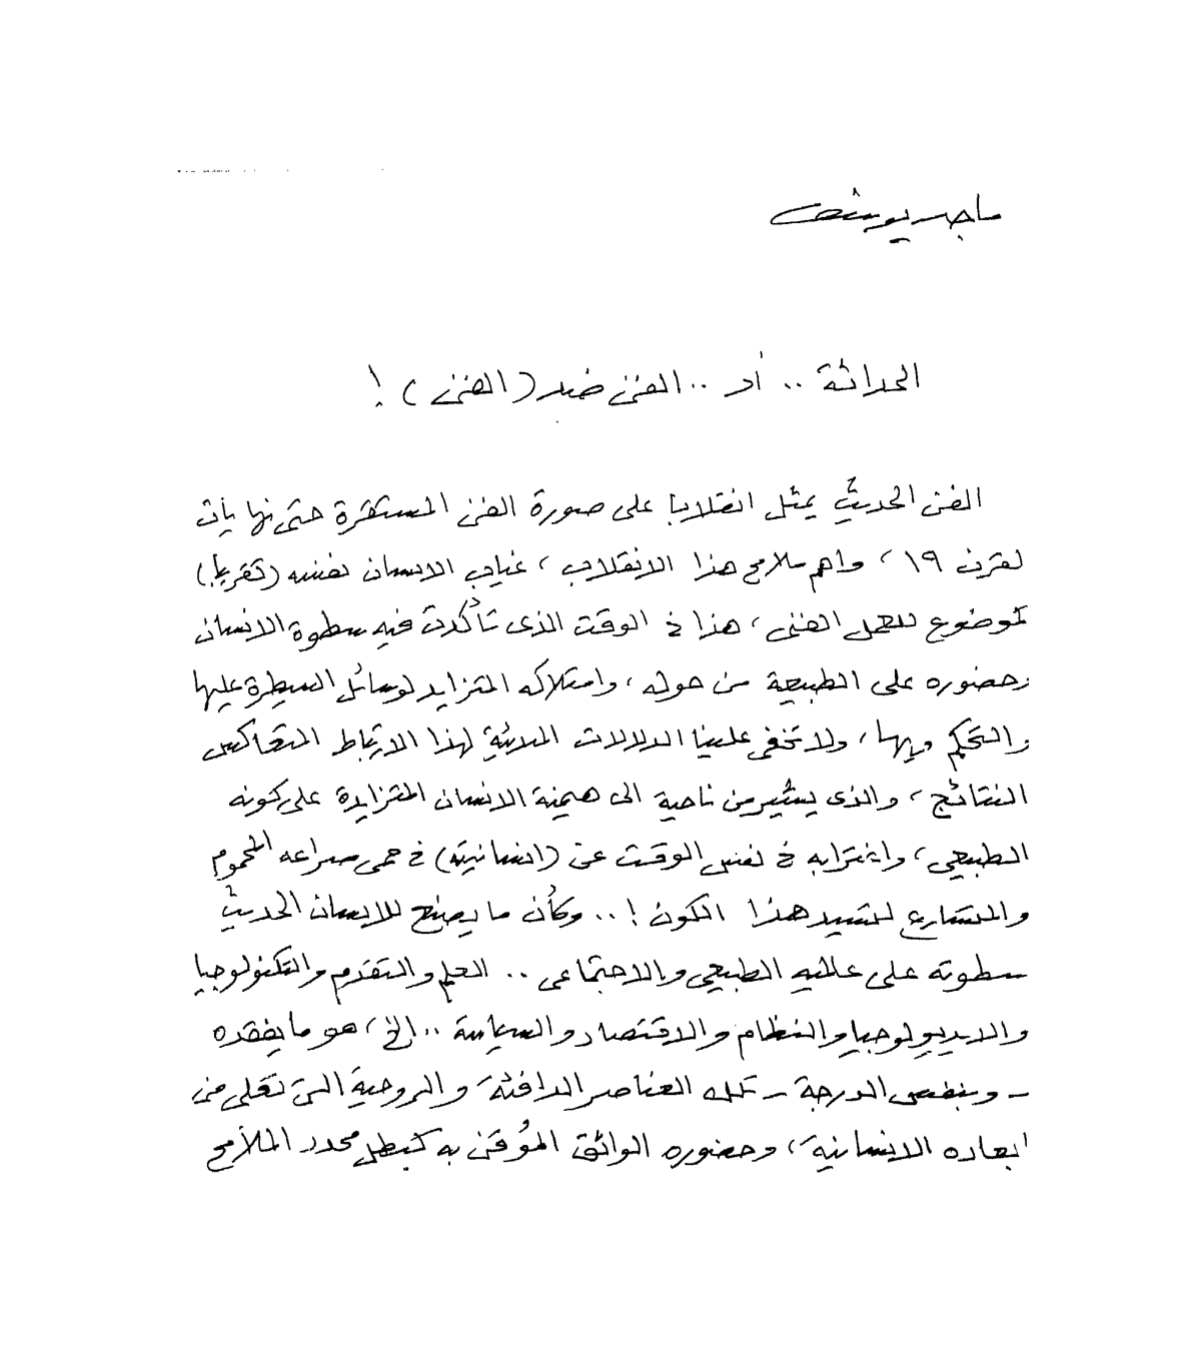 ماجد يوسف
الحداثة .. أو .. الفن ضد (الفن) !
الفن الحديث يمثل انقلابا على صورة الفن المستقرة حتى نهايات
لقرن ١٩ ، واهم ملامح هذا الانقلاب ، غياب الانسان نفسه (تقريبا)
كموضوع للعمل الفنى ، هذا فى الوقت الذى تأكدت فيه سطوة الانسان
وحضوره على الطبيعة من حوله ، وامتلاكه المتزايد لوسائل السيطرة عليها
والتحكم فيها ، ولا تخفى علينا الدلالات المبدئية لهذا الارتباط المتعاكس
النتائج ، والذى يشير من ناحية الى هيمنة الانسان المتزايدة على كونه
الطبيعى ، واغترابه فى نفس الوقت عن (انسانيته) فى حمى صراعه المحموم
والمتسارع لتسيد هذا الكون ! .. وكأن ما يصنع للانسان الحديث
سطوته على عالميه الطبيعى والاجتماعى .. العلم والتقدم والتكنولوجيا
والايديولوجيا والنظام والاقتصاد والسياسة .. الخ ، هو ما يفقده
- وبنفس الدرجة - تلك العناصر الدافئة والروحية التى تعلى من
ابعاده الانسانية ، وحضوره الواثق المؤمن به كبطل محدد الملامح